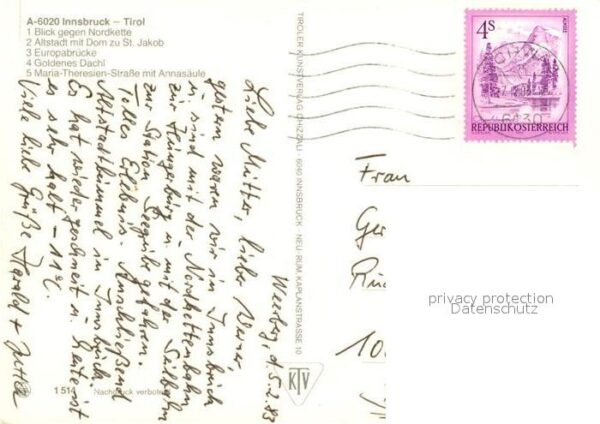 A-6020 Innsbruck – Tirol
1 Blick gegen Nordkette
2 Altstadt mit Dom zu St. Jakob
3 Europabrücke
4 Goldenes Dachl
5 Maria-Theresien-Straße mit Annasäule
Weerberg, d. 5.2.83
Liebe Mutter, lieber Werner,
gestern waren wir in Innsbruck
u. sind mit der Nordkettenbahn
zur Hungerburg u. mit der Seilbahn
zur Station Seegrube gefahren.
Tolles Erlebnis. Anschließend
Altstadtbummel in Innsbruck.
Es hat wieder geschneit u. heute ist
es sehr kalt -11°C.
Viele liebe Grüße Harald + Jutta
TIROLER KUNSTVERLAG CHIZZALI · 6040 INNSBRUCK · NEU-RUM, KAPLANSTRASSE 10
KTV
1 514
Nachdruck verboten
4S
REPUBLIK ÖSTERREICH
Frau
Ger
10
privacy protection
Datenschutz